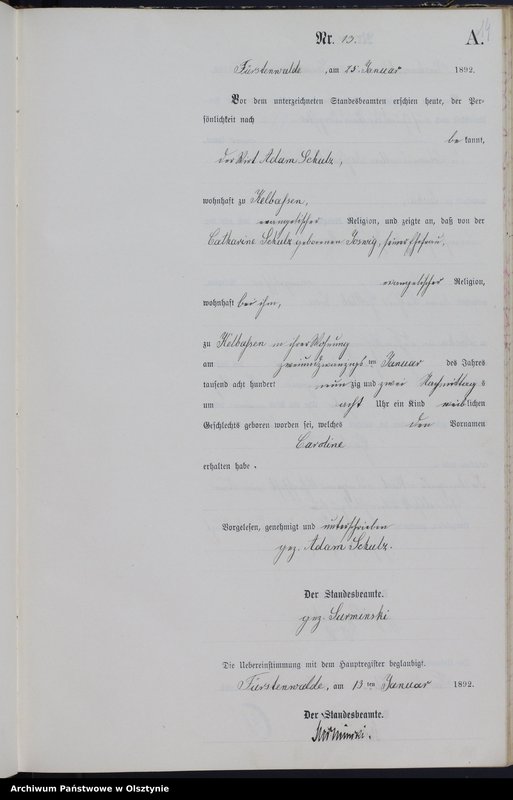 Nr. 13.
A.
Fürstenwalde, am 25 Januar 1892.
Vor dem unterzeichneten Standesbeamten erschien heute, der Per-
sönlichkeit nach
be kannt,
der Wirt Adam Schulz,
wohnhaft zu Kelbassen,
evangelischer Religion, und zeigte an, daß von der
Catharine Schulz geborenen Joswig, seiner Ehefrau,
evangelischer Religion,
wohnhaft bei ihm,
zu Kelbassen in ihrer Wohnung
am zweiundzwanzigsten Januar des Jahres
tausend acht hundert neun zig und zwei Nachmittag s
um acht Uhr ein Kind weiblichen
Geschlechts geboren worden sei, welches den Vornamen
Caroline
erhalten habe.
Vorgelesen, genehmigt und unterschrieben
gez. Adam Schulz.
Der Standesbeamte.
gez. Surminski
Die Uebereinstimmung mit dem Hauptregister beglaubigt.
Fürstenwalde, am ten Januar 1892.
Der Standesbeamte.
Surminski.
Archiwum Państwowe w Olsztynie